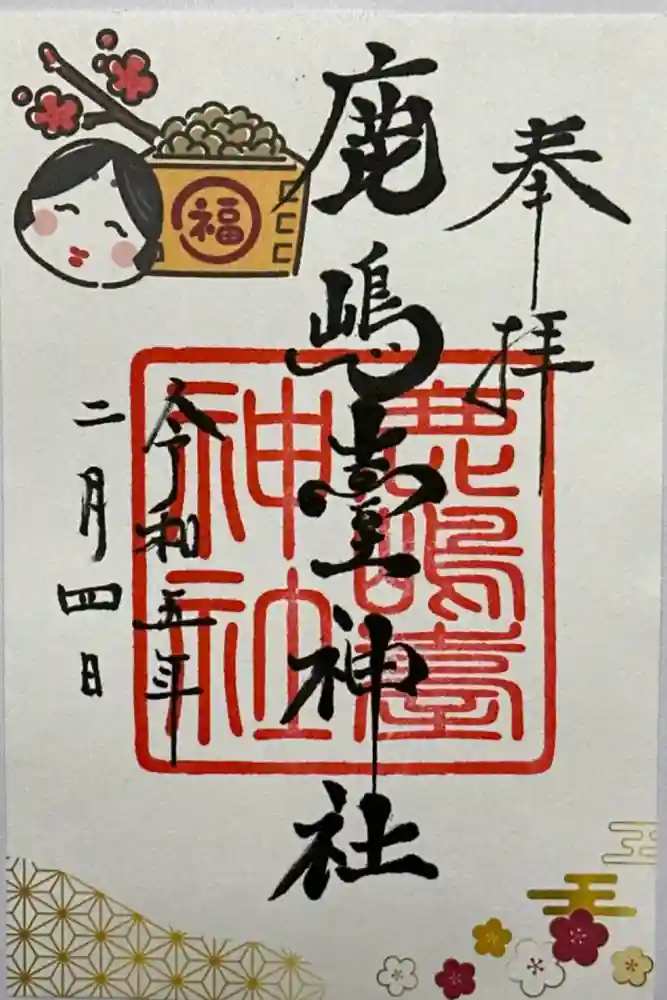 奉拝
鹿嶋臺神社
鹿嶋臺神社
令和五年
二月四日
福